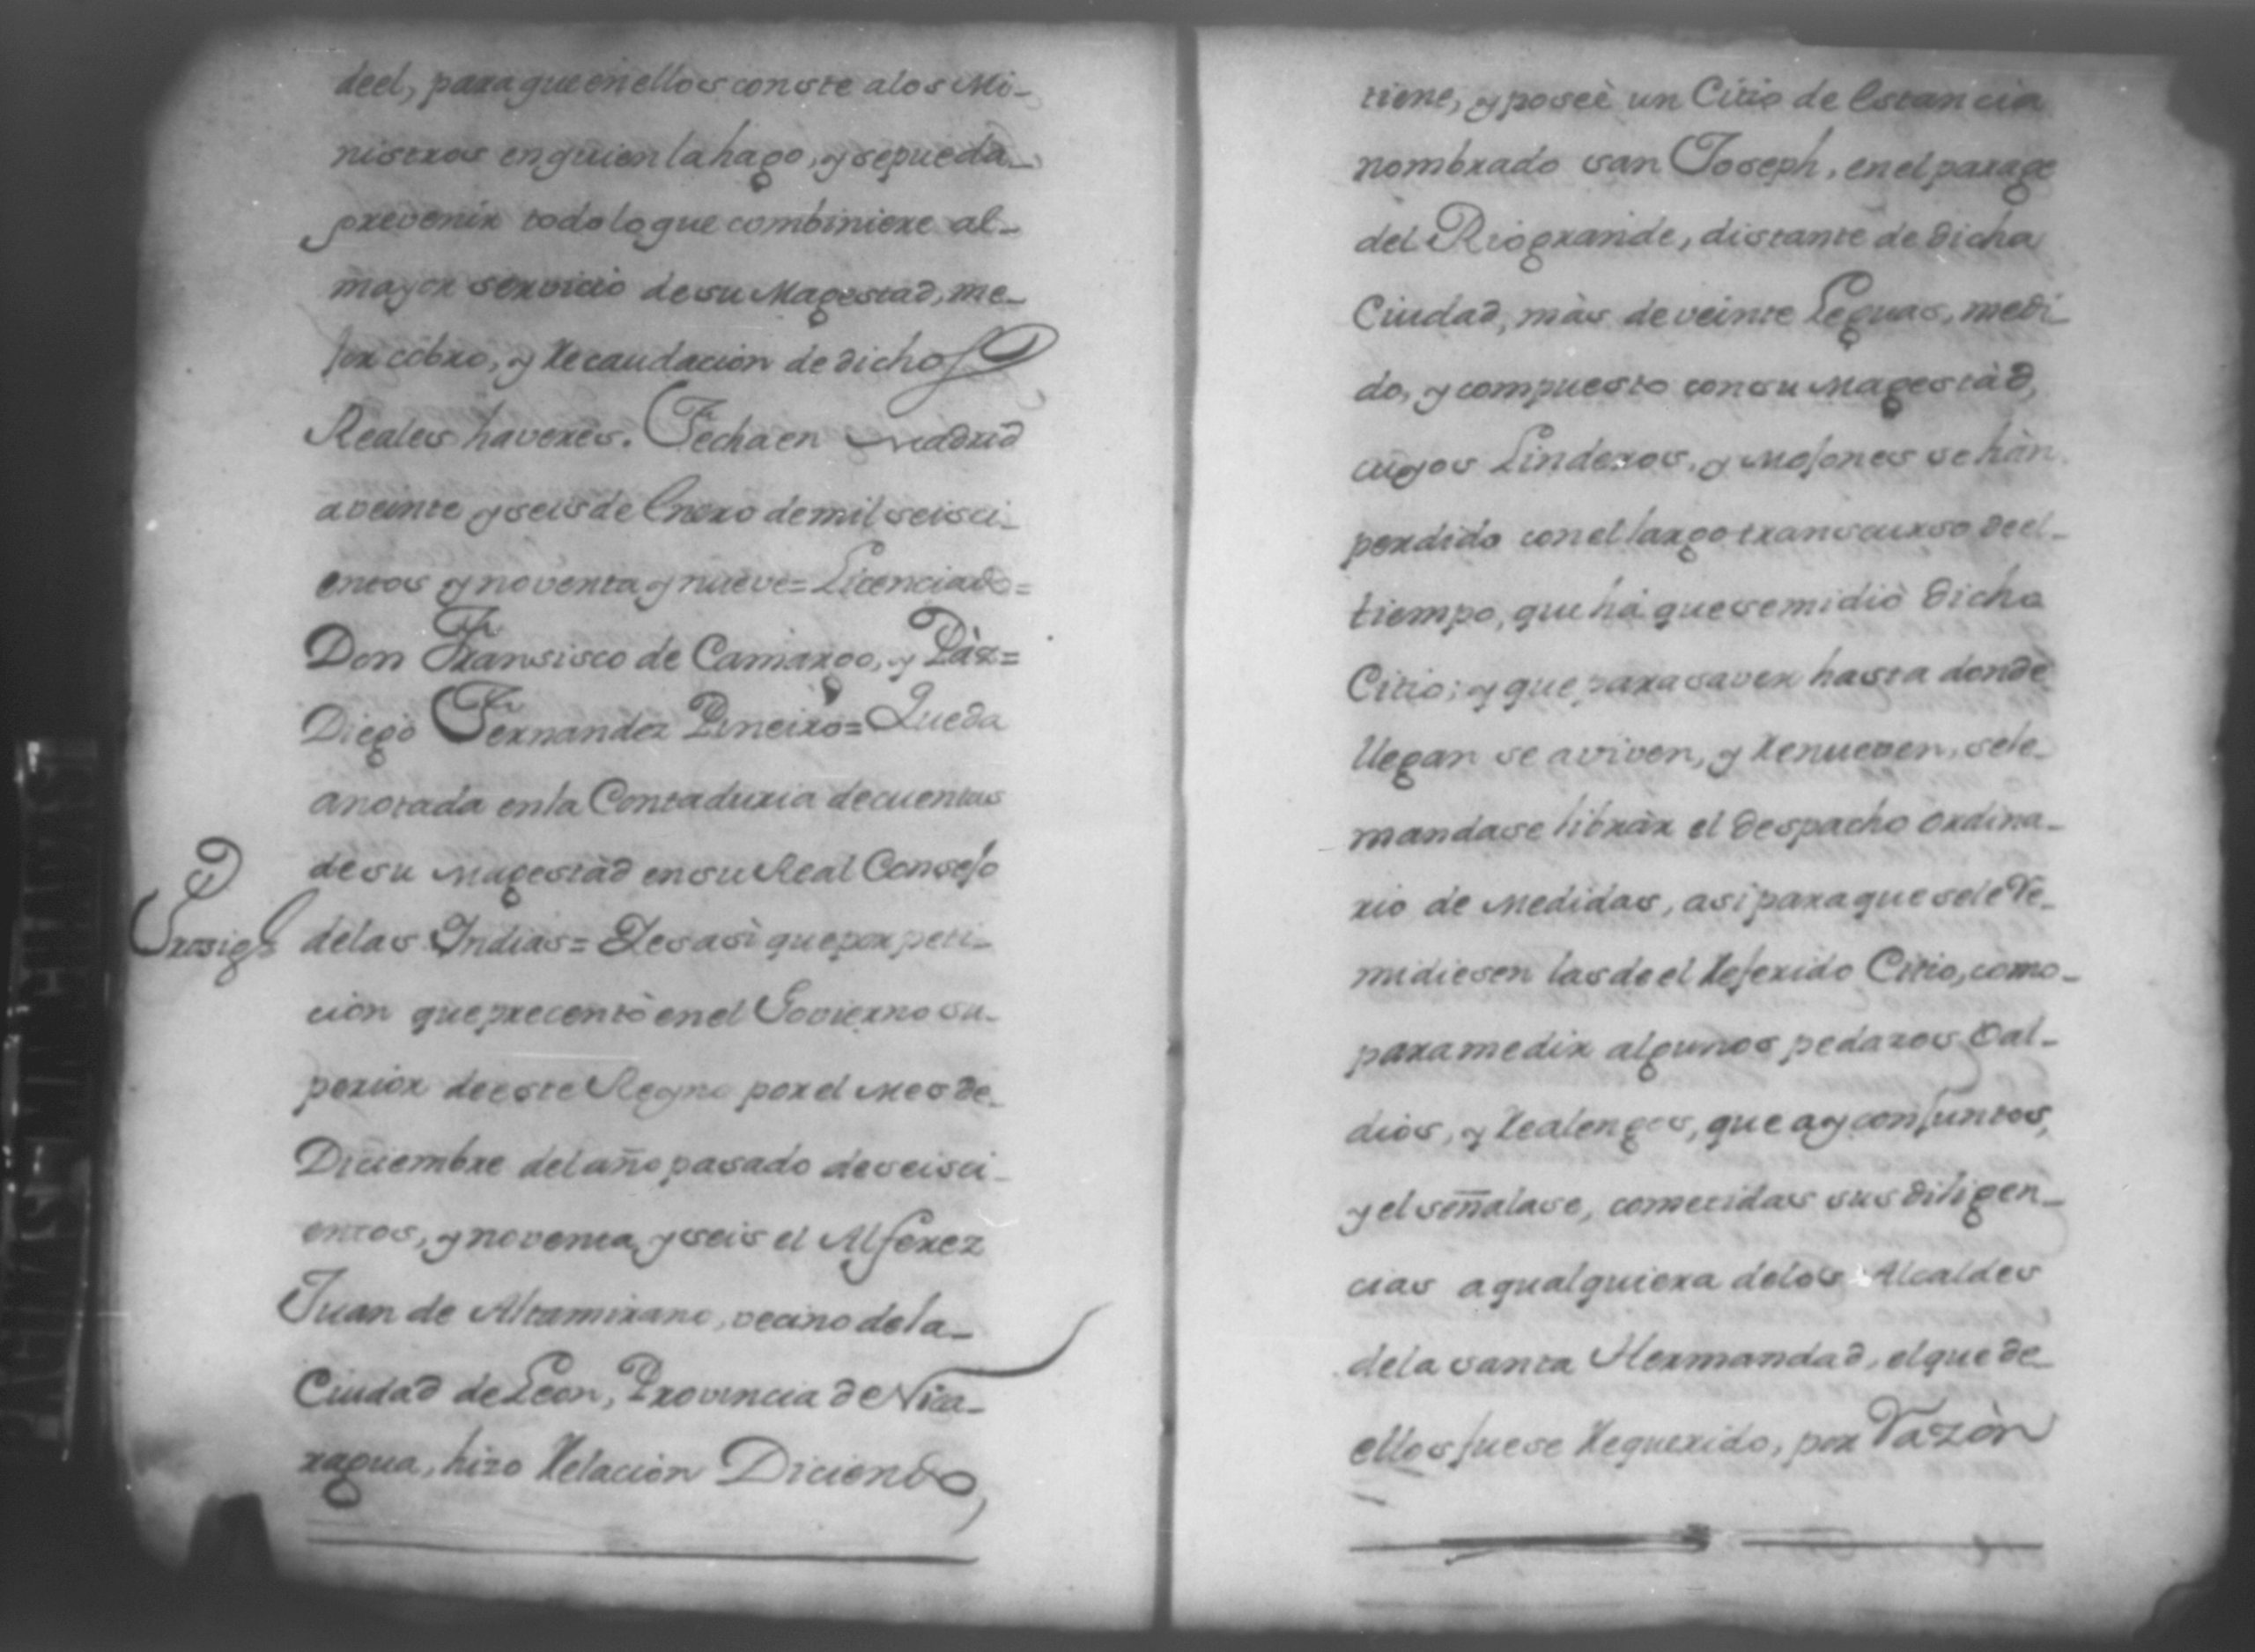 deel, para que en ellos conste a los Mi-
nistros en quien la hago, y se pueda-
prevenir todo lo que combiniere al-
mayor servicio de su Magestad, me-
jor cobro, y Recaudacion de dichos
Reales haveres. Fecha en Madrid
a veinte y seis de Enero de mil seisci-
entos y noventa y nueve= Licenciado=
Don Fransisco de Camargo, y Pàz=
Diego Fernandez Pineiro= Queda
anotada en la Contaduria de cuentas
de su Magestàd en su Real Consejo
Prosigue
de las Indias= Yes asì que por peti-
cion que precentò en el Govierno su-
perior de este Reyno por el Mes de-
Diciembre del año pasado de seisci-
entos, y noventa, y seis el Alferez
Juan de Altamirano, vecino de la-
Ciudad de Leon, Provincia de Nica-
ragua, hizo Relacion Diciendo,
tiene, y poseè un Citio de Estancia
nombrado san Joseph, en el parage
del Riogrande, distante de dicha
Ciudad, màs de veinte Leguas, medi-
do, y compuesto con su Magestàd,
cuyos Linderos, y Mojones se hàn
perdido con el largo transcurso deel-
tiempo, que há que se midiò dicho
Citio; y que para saver hasta donde
llegan se aviven, y Renueven, se le-
mandase libràr el despacho ordina-
rio de Medidas, asi para que se le Re-
midiesen las deel Referido Citio, como-
para medir algunos pedazos Bal-
dios, y Realengos, que ay conjuntos,
y el señalase, cometidas sus diligen-
cias a qualquiera de los Alcaldes
de la santa Hermandad, el que de
ellos fuese Requerido, por Razòn